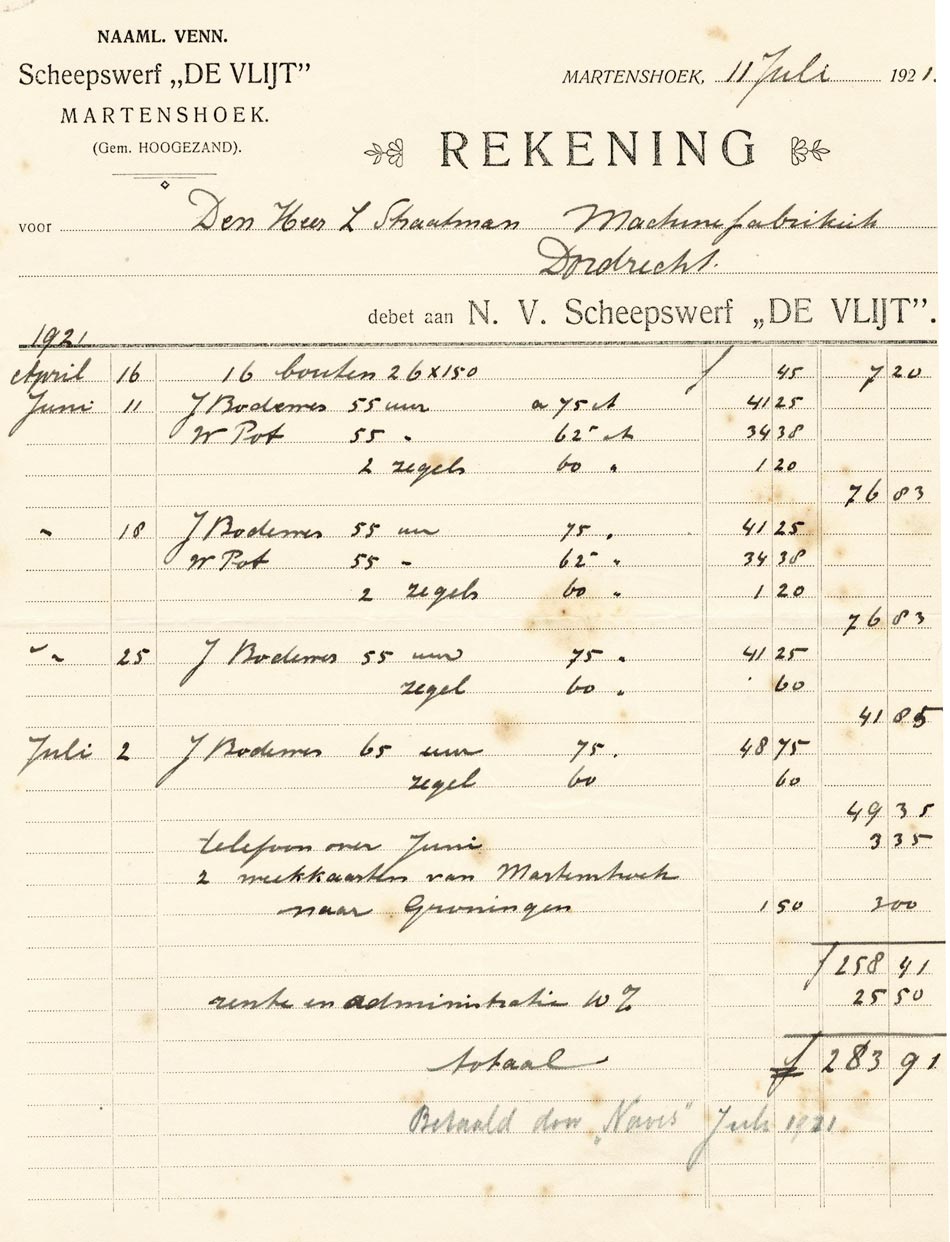 NAAML. VENN.
Scheepswerf „DE VLIJT”
MARTENSHOEK.
(Gem. HOOGEZAND).
MARTENSHOEK, 11 Juli 1921.
REKENING
voor Den Heer L Straatman Machinefabriek
Dordrecht.
debet aan N. V. Scheepswerf „DE VLIJT”.
1921
April 16 16 bouten 26 x 150 f 45 7 20
Juni 11 J Bodewes 55 uur a 75 ct 41 25
W Pot 55 " 62⁵ ct 34 38
2 zegels 60 " 1 20
76 83
" 18 J Bodewes 55 uur 75 " 41 25
W Pot 55 " 62⁵ " 34 38
2 zegels 60 " 1 20
76 83
" " 25 J Bodewes 55 uur 75 " 41 25
zegel 60 " 60
41 85
Juli 2 J Bodewes 65 uur 75 " 48 75
zegel 60 60
49 35
telefoon over Juni 3 35
2 weekkaarten van Martenshoek
naar Groningen 1 50 3 00
f 258 41
rente en administratie 10 % 25 50
totaal f 283 91
Betaald door „ " Juli 1921